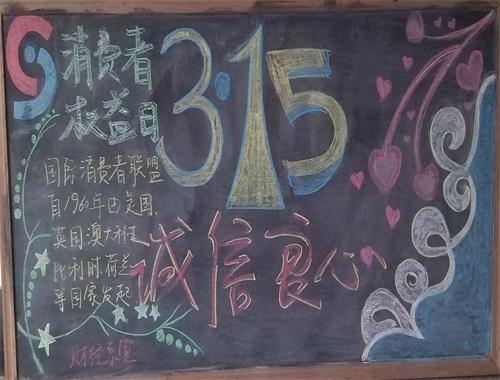 消费者
权益日
3·15
国际消费者联盟
自1960年由美国、
英国、澳大利亚
比利时、荷兰
等国家发起
诚信良心
财经系宣